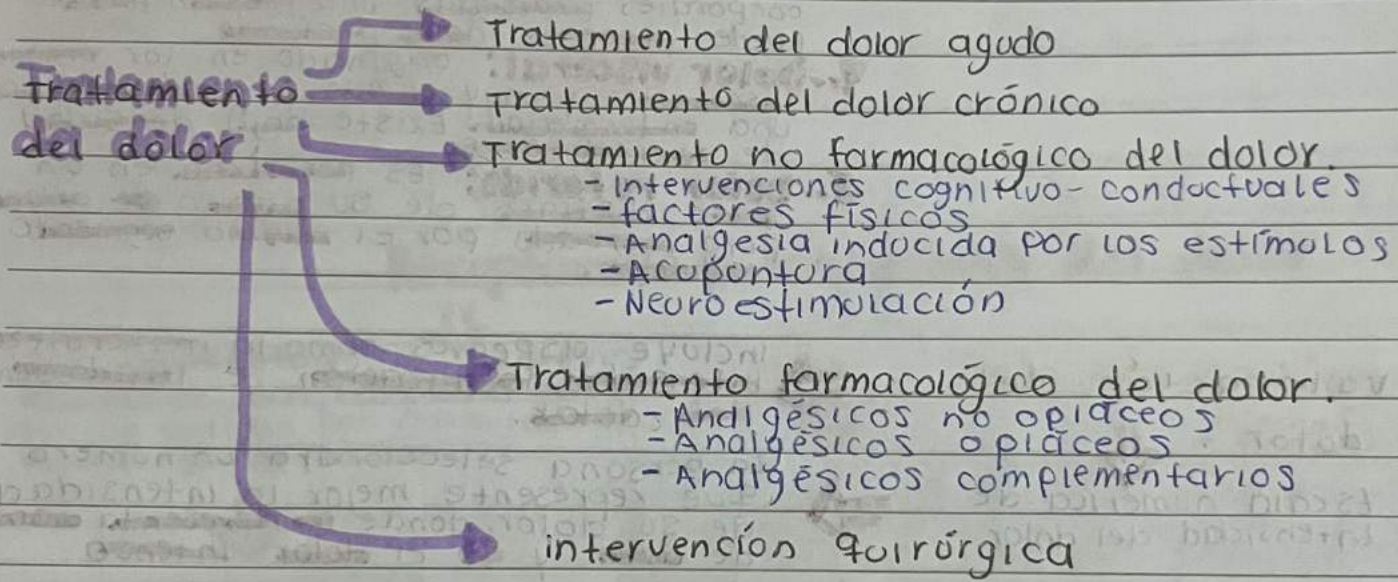 Tratamiento del dolor agudo
Tratamiento
del dolor
Tratamiento del dolor crónico
Tratamiento no farmacológico del dolor.
- Intervenciones cognitivo-conductuales
- factores físicos
- Analgesia inducida por los estímulos
- Acupuntura
- Neuroestimulación
Tratamiento farmacológico del dolor.
- Analgésicos no opiáceos
- Analgésicos opiáceos
- Analgésicos complementarios
intervención quirúrgica